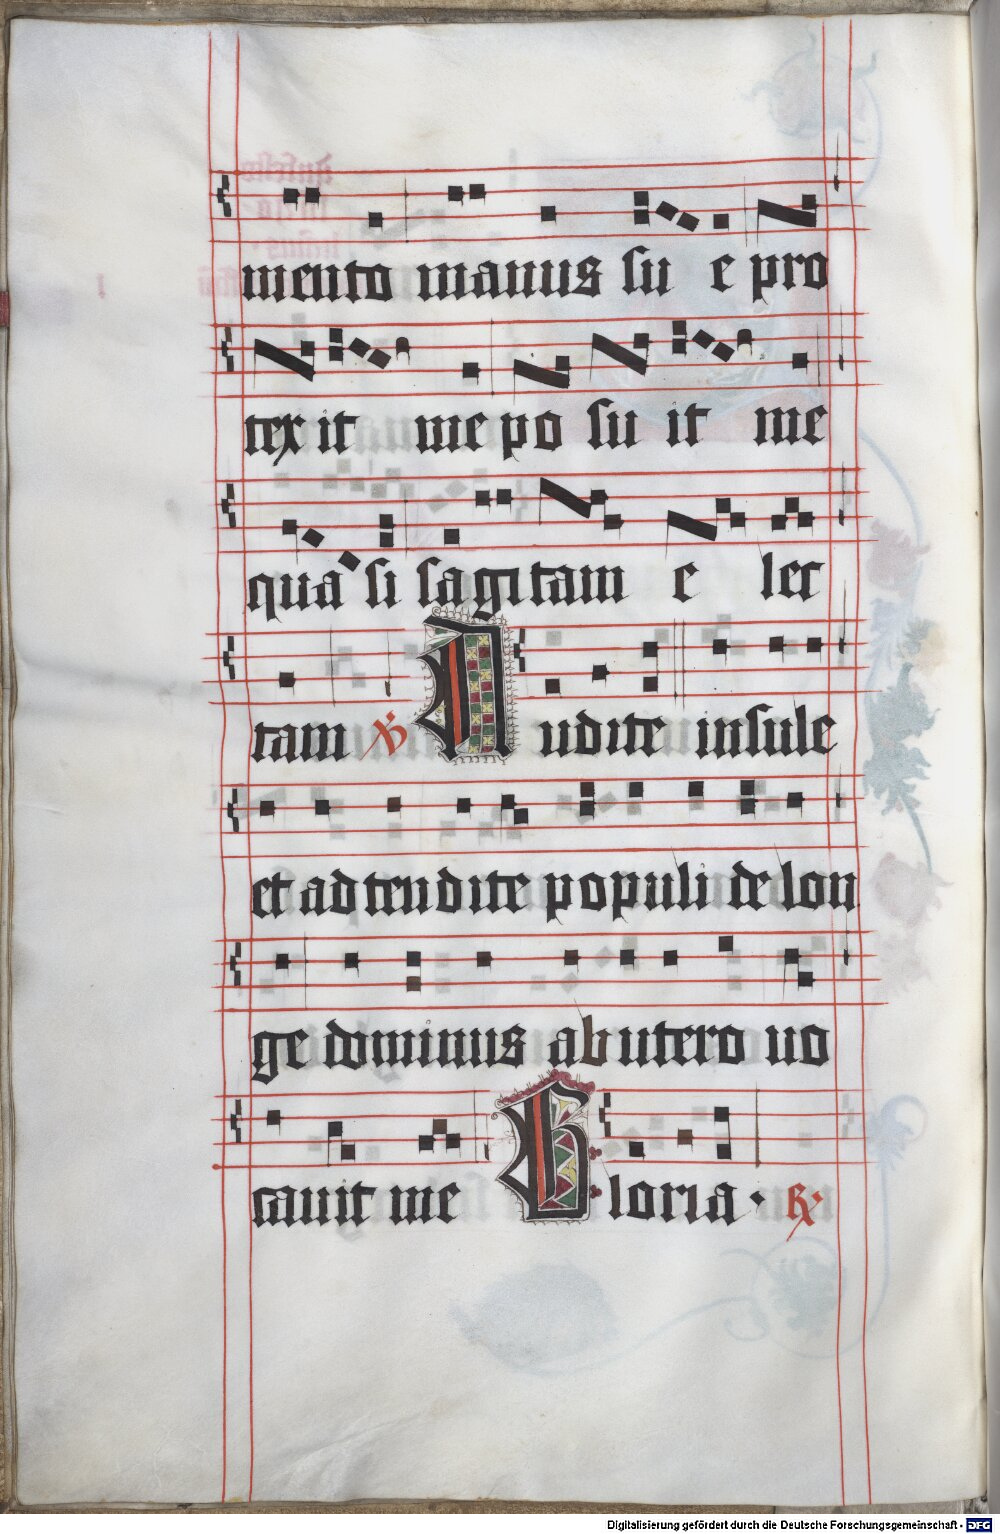 mento manus su e pro
tex it me po su it me
qua si sagitam e lec
tam ℣ Audite insule
et adtendite populi de lon
ge dominus ab utero uo
cauit me Gloria · ℟·
Digitalisierung gefördert durch die Deutsche Forschungsgemeinschaft - DFG